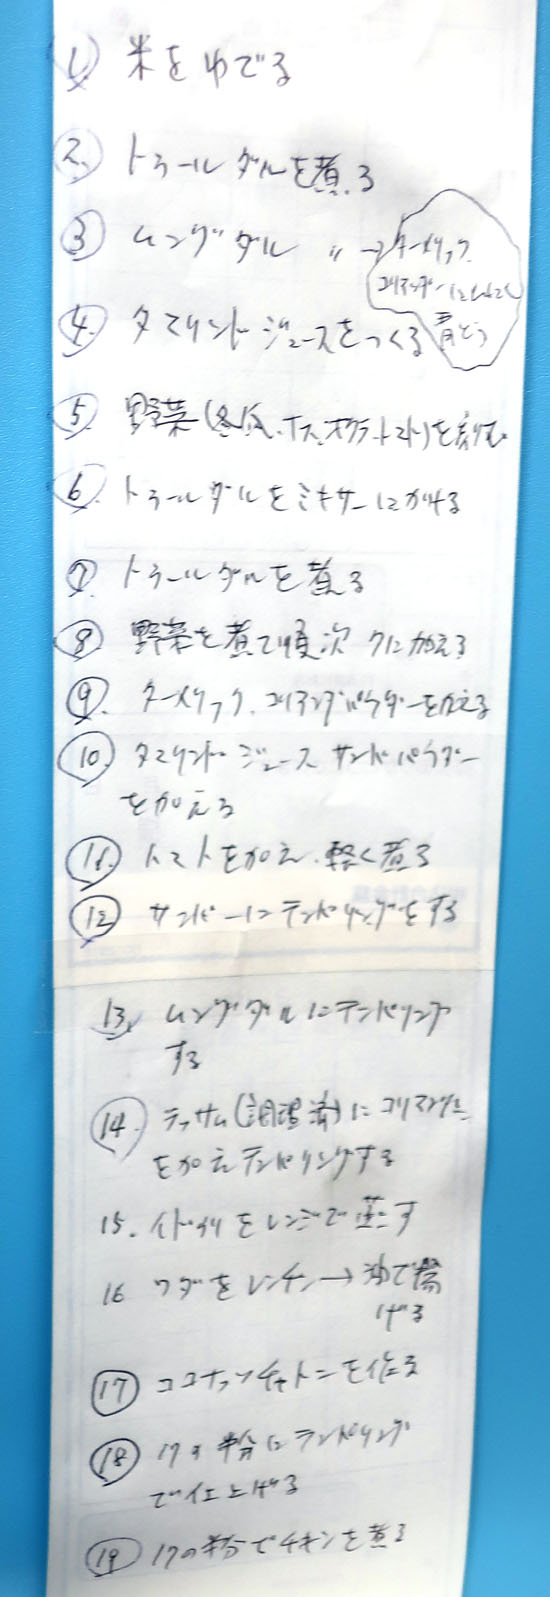 ① 米をゆでる
② トゥールダルを煮る
③ ムングダル 〃 → ターメリック
コリアンダー にんにく
④ タマリンドジュースをつくる 青とう
⑤ 野菜(冬瓜、ナス、オクラ、トマト)を刻む
⑥ トゥールダルをミキサーにかける
⑦ トゥールダルを煮る
⑧ 野菜を煮て順次 7に加える
⑨ ターメリック、コリアンダパウダーを加える
⑩ タマリンドジュース サンバパウダー
を加える
⑪ トマトを加え、軽く煮る
⑫ サンバーにテンパリングをする
13. ムングダルにテンパリング
する
⑭ ラッサム(調理済)に コリアンダー
を加えテンパリングする
15. イドゥリをレンジで蒸す
16 ワダをレンチン→油で揚
げる
⑰ ココナッツチャトニを作る
⑱ 17の半分にテンパリング
で仕上げる
⑲ 17の半分でチキンを煮る